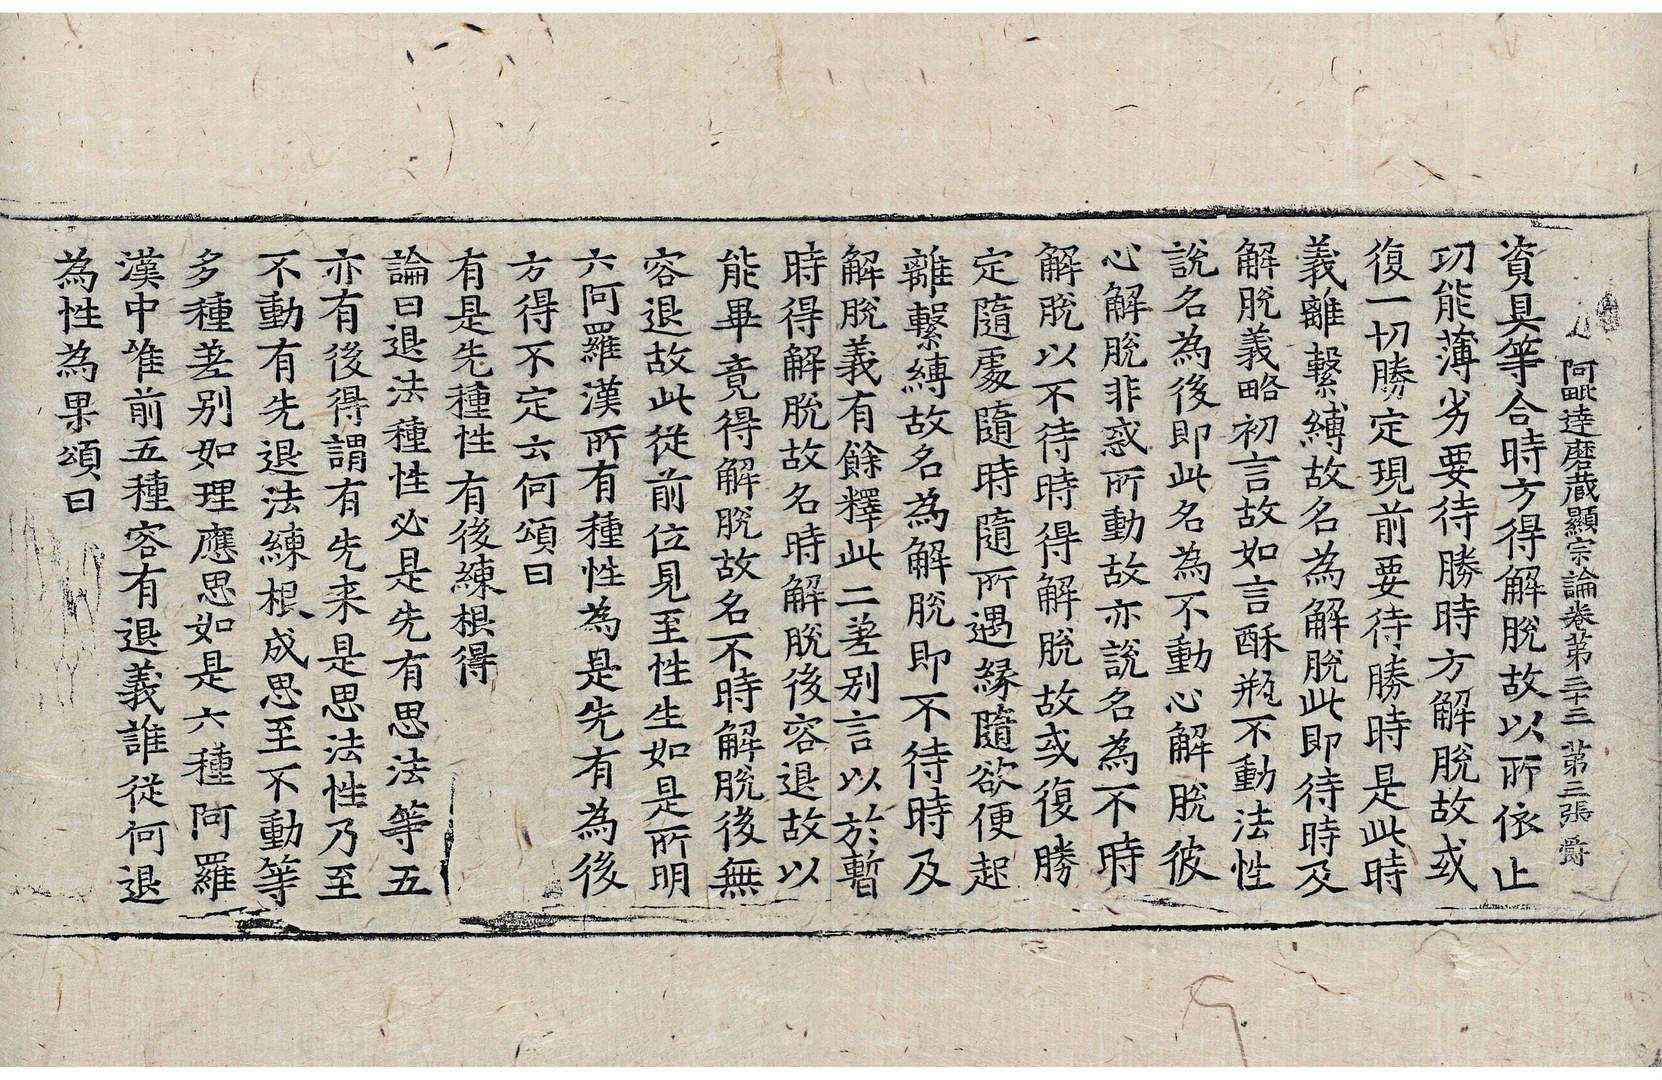 阿毗達磨蔵顯宗論卷第三十三 第三張 爵
資具等合時方得解脫故以所依止
功能薄劣要待勝時方解脫故或
復一切勝定現前要待勝時是此時
義離繫縛故名為解脫此即待時及
解脫義略初言故如言酥瓶不動法性
說名為後即此名為不動心解脫彼
心解脫非惑所動故亦說名為不時
解脫以不待時得解脫故或復勝
定隨處隨時隨所遇縁隨欲便起
離繫縛故名為解脫即不待時及
解脫義有餘釋此二差別言以於暫
時得解脫故名時解脫後容退故以
能畢竟得解脫故名不時解脫後無
容退故此從前位見至性生如是所明
六阿羅漢所有種性為是先有為後
方得不定云何頌曰
有是先種性 有後練根得
論曰退法種性必是先有思法等五
亦有後得謂有先来是思法性乃至
不動有先退法練根成思至不動等
多種差别如理應思如是六種阿羅
漢中唯前五種容有退義誰從何退
為性為果頌曰